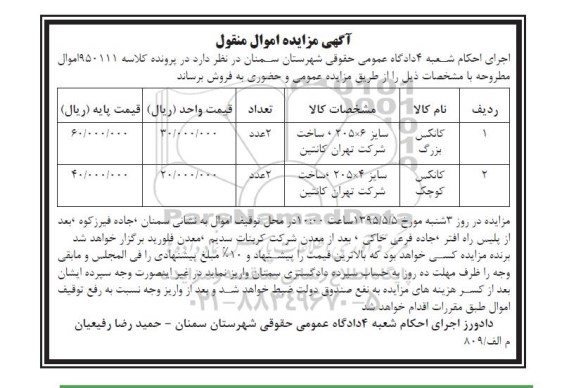 آگهی مزایده اموال منقول
اجرای احکام شعبه ۴دادگاه عمومی حقوقی شهرستان سمنان در نظر دارد در پرونده کلاسه ۹۵۰۱۱۱اموال
مطروحه با مشخصات ذیل را از طریق مزایده عمومی و حضوری به فروش برساند
ردیف نام کالا مشخصات کالا تعداد قیمت واحد (ریال) قیمت پایه (ریال)
۱ کانکس سایز ۶×۲۰۵ ، ساخت ۲عدد ۳۰/۰۰۰/۰۰۰ ۶۰/۰۰۰/۰۰۰
بزرگ شرکت تهران کانتین
۲ کانکس سایز ۴×۲۰۵ ،ساخت ۲عدد ۲۰/۰۰۰/۰۰۰ ۴۰/۰۰۰/۰۰۰
کوچک شرکت تهران کانتین
مزایده در روز ۳شنبه مورخ ۱۳۹۵/۵/۵ساعت ۱۰:۰۰در محل توقیف اموال به نشانی سمنان ،جاده فیرزکوه ،بعد
از پلیس راه افتر ،جاده فرعی خاکی ، بعد از معدن شرکت کربنات سدیم ،معدن فلورید برگزار خواهد شد
برنده مزایده کسی خواهد بود که بالاترین قیمت را پیشنهاد و ۱۰٪ مبلغ پیشنهادی را فی المجلس و مابقی
وجه را ظرف مهلت ده روز به حساب سپرده دادگستری سمنان واریز نماید در غیر اینصورت وجه سپرده ایشان
بعد از کسر هزینه های مزایده به نفع صندوق دولت ضبط خواهد شد و بعد از واریز وجه نسبت به رفع توقیف
اموال طبق مقررات اقدام خواهد شد
دادورز اجرای احکام شعبه ۴دادگاه عمومی حقوقی شهرستان سمنان - حمید رضا رفیعیان
م الف/۸۰۹
۰۲۱-۸۸۳۴۹۶۷۰-۵